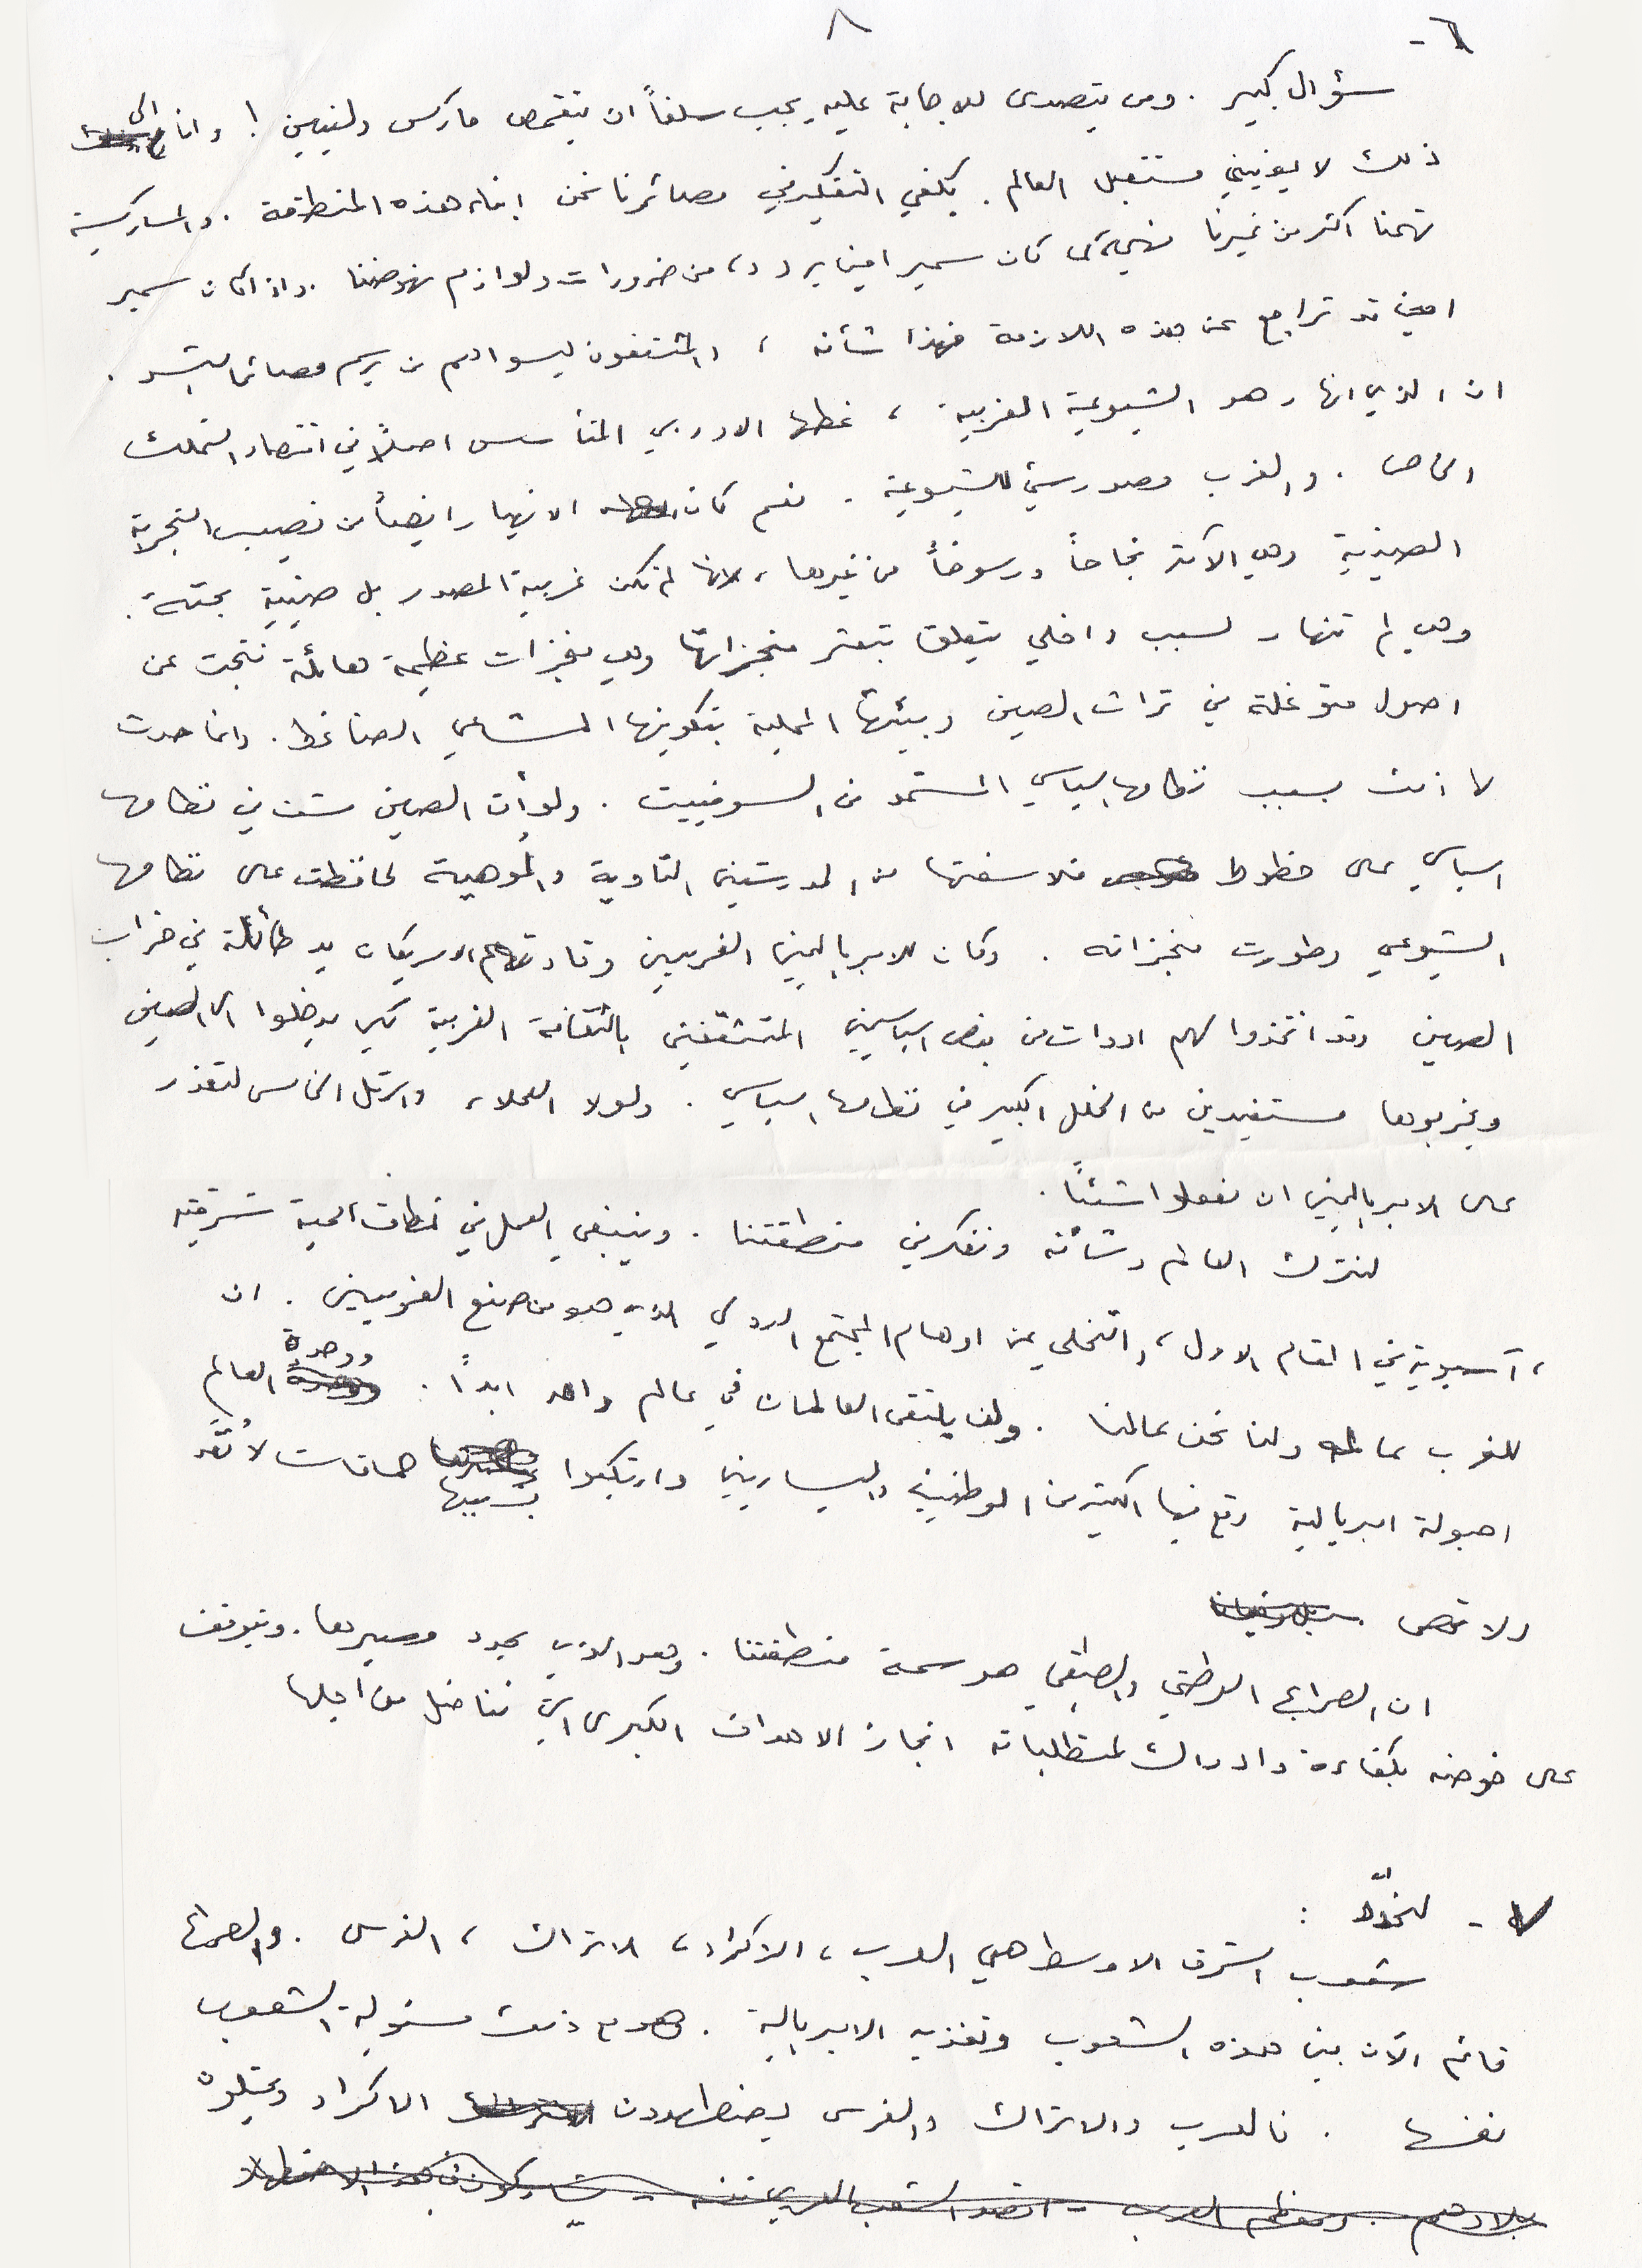 ٨
٦-
سؤال كبير . ومن يتصدى للاجابة عليه يجب سلفاً ان يتقمص ماركس ولينين ! وانا الى
ذلك لا يعنيني مستقبل العالم . يكفي التفكير في مصائرنا نحن ابناء هذه المنطقة . والماركسية
تهمنا اكثر من غيرنا فهي كما كان سمير امين يردد ، من ضرورات ولوازم نهوضنا . واذا كان سمير
امين قد تراجع عن هذه اللازمة فهذا شأنه ، والمثقفون ليسوا هم من يرسم مصائر البشر .
ان الذي انهار هو الشيوعية الغربية ، نمطها الاوربي المتأسس اصلاً في اقتصاد التملك
الخاص . والغرب مصدر سيئ للشيوعية . نعم كان الانهيار ايضاً من نصيب التجربة
الصينية وهي الأكثر نجاحاً ورسوخاً من غيرها ، لانها لم تكن غربية المصدر بل صينية بحتة .
وهي لم تنهار لسبب داخلي يتعلق بتعثر منجزاتها وهي منجزات عظيمة هائلة نتجت عن
اصول متوغلة في تراث الصين وبيئتها المحلية بتكوينها المشاعي الضاغط . وانما حدث
لا ذلك بسبب نظامها السياسي المستمد من السوفييت . ولو أن الصين مشت في نظامها
السياسي على خطوط فلاسفتها من المدرستين التاوية والموهية لحافظت على نظامها
الشيوعي وطورت منجزاته . وكان للامبرياليين الغربيين وقادتهم الامريكان يد طائلة في خراب
الصين وقد اتخذوا لهم ادوات من بعض السياسيين المتثقفين بالثقافة الغربية لكي يدخلوا الى الصين
ويخربوها مستفيدين من الخلل الكبير في نظامها السياسي . ولولا العملاء والرتل الخامس لتعذر
على الامبرياليين ان يفعلوا شيئاً .
لنترك العالم وشأنه ونفكر في منطقتنا . وينبغي العمل في نطاقات اممية شرقية
، آسيوية في المقام الاول ، والتخلي عن اوهام المجتمع الدولي الذي هو من صنع الغربيين . ان
للغرب عالمه ولنا نحن عالمنا . ولن يلتقي العالمان في عالم واحد ابداً . ووحدة العالم
احبولة امبريالية وقع فيها الكثير من الوطنيين واليساريين وارتكبوا بسببها حماقات لا تُعَدّ
ولا تحصى .
ان الصراع الوطني والطبقي هو سمة منطقتنا . وهو الذي يحدد مصيرها . ويتوقف
على خوضه بكفاءة وادراك لمتطلباته انجاز الاهداف الكبرى التي نناضل من اجلها
٧ - لنحدّد :
شعوب الشرق الاوسط هي العرب ، الاكراد ، الاتراك ، الفرس . والصراع
قائم الآن بين هذه الشعوب وتغذيه الامبريالية . وهو مع ذلك مسئولية الشعوب
نفسها . فالعرب والاتراك والفرس يضطهدون الاكراد ويحتلون
بلادهم . ومعظم العرب - اقصد الشعب العربي نفسه -